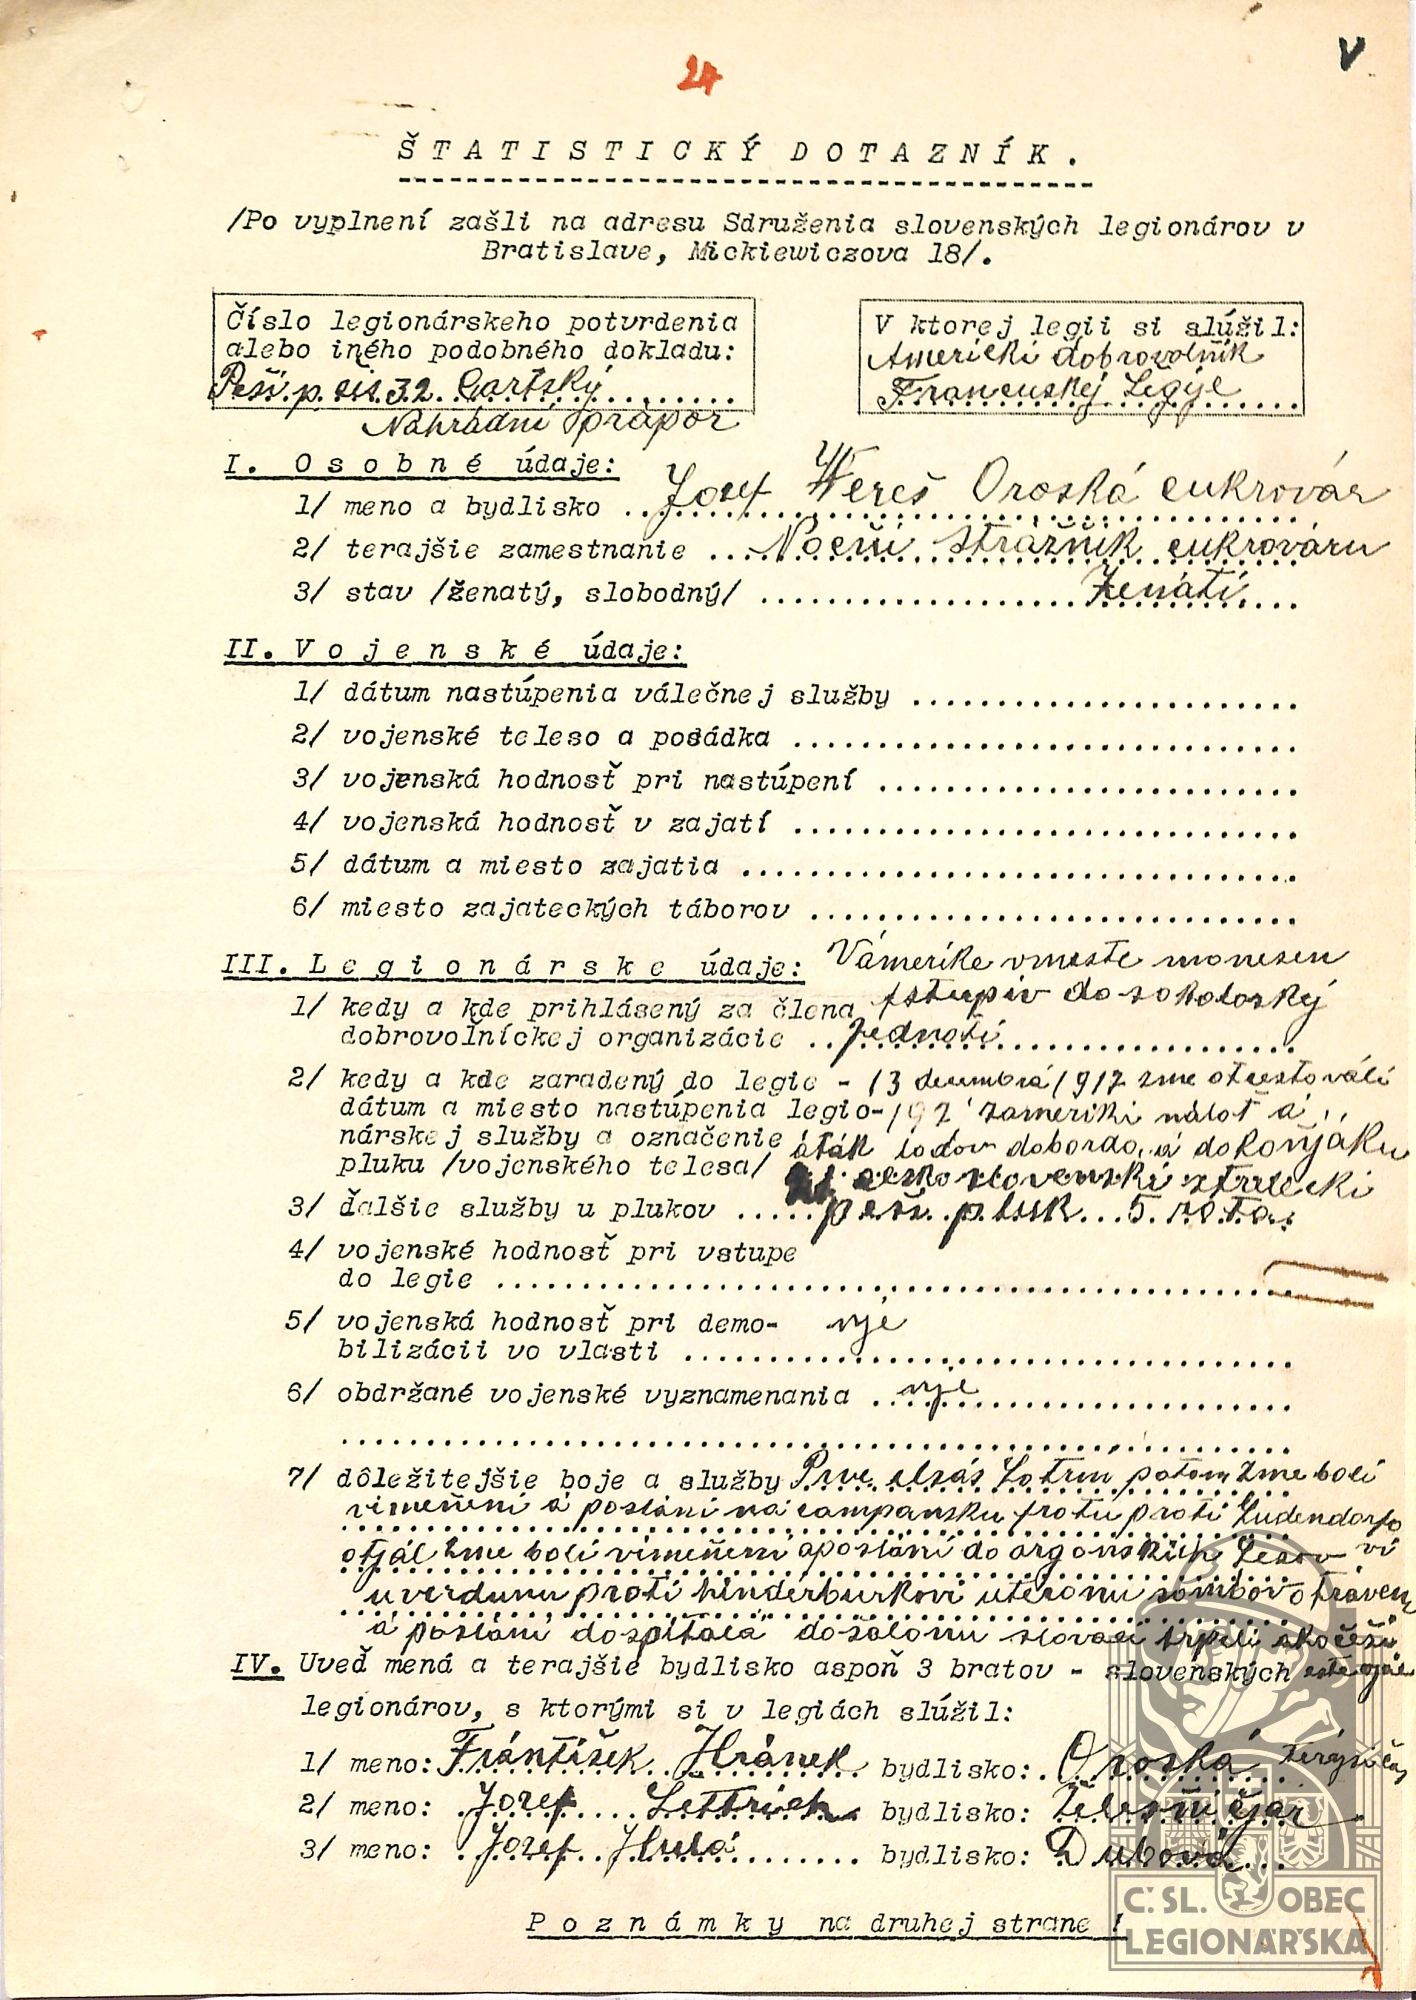 24
V
ŠTATISTICKÝ DOTAZNÍK.
/Po vyplnení zašli na adresu Sdruženia slovenských legionárov v
Bratislave, Mickiewiczova 18/.
Číslo legionárskeho potvrdenia
alebo iného podobného dokladu:
Peší. p. čís. 32. Gartský
Náhradní prápor
V ktorej legii si slúžil:
Americkí dobrovolník
Francuskéj Légije
I. Osobné údaje:
1/ meno a bydlisko Jozef Wereš Oroská cukrovár
2/ terajšie zamestnanie Nočni strážník cukrováru
3/ stav /ženatý, slobodný/ Ženátí
II. Vojenské údaje:
1/ dátum nastúpenia válečnej služby
2/ vojenské teleso a posádka
3/ vojenská hodnosť pri nastúpení
4/ vojenská hodnosť v zajatí
5/ dátum a miesto zajatia
6/ miesto zajateckých táborov
III. Legionárske údaje: Vámerike vmeste monesen
1/ kedy a kde prihlásený za člena fstupiv do sokolorskéj
dobrovoľníckej organizácie jednotí
2/ kedy a kde zaradený do legie - 13 decembrá 1917 sme
dátum a miesto nastúpenia legio- zameriki nálot á
nárskej služby a označenie áták lodov dobordo á dokoňjáku
pluku /vojenského telesa/ 21 československí strelecki
3/ ďalšie služby u plukov peší pluk 5. rota.
4/ vojenské hodnosť pri vstupe
do legie
5/ vojenská hodnosť pri demo- nje
bilizácii vo vlasti
6/ obdržané vojenské vyznamenania nje
7/ dôležitejšie boje a služby Prve elzás Lotrin potom zme bolí
vimeňení á poslání ná campansku frotu proti Ludendorfo
vi
otjál zme bolí vimeňení áposlání do argonskich Lesov
uverdunu proti hinderburkovi utéronu sombov otráveni
á poslání dospitálá dosálonu slováci trpeli ako česi
IV. Uveď mená a terajšie bydlisko aspoň 3 bratov - slovenských
legionárov, s ktorými si v legiách slúžil:
1/ meno: Frántíšek Hránek bydlisko: Oroská
2/ meno: Jozef Lettrich bydlisko:
3/ meno: Jozef Hulá bydlisko: Dubová
Poznámky na druhej strane !
Č.SL. OBEC
LEGIONÁŘSKÁ